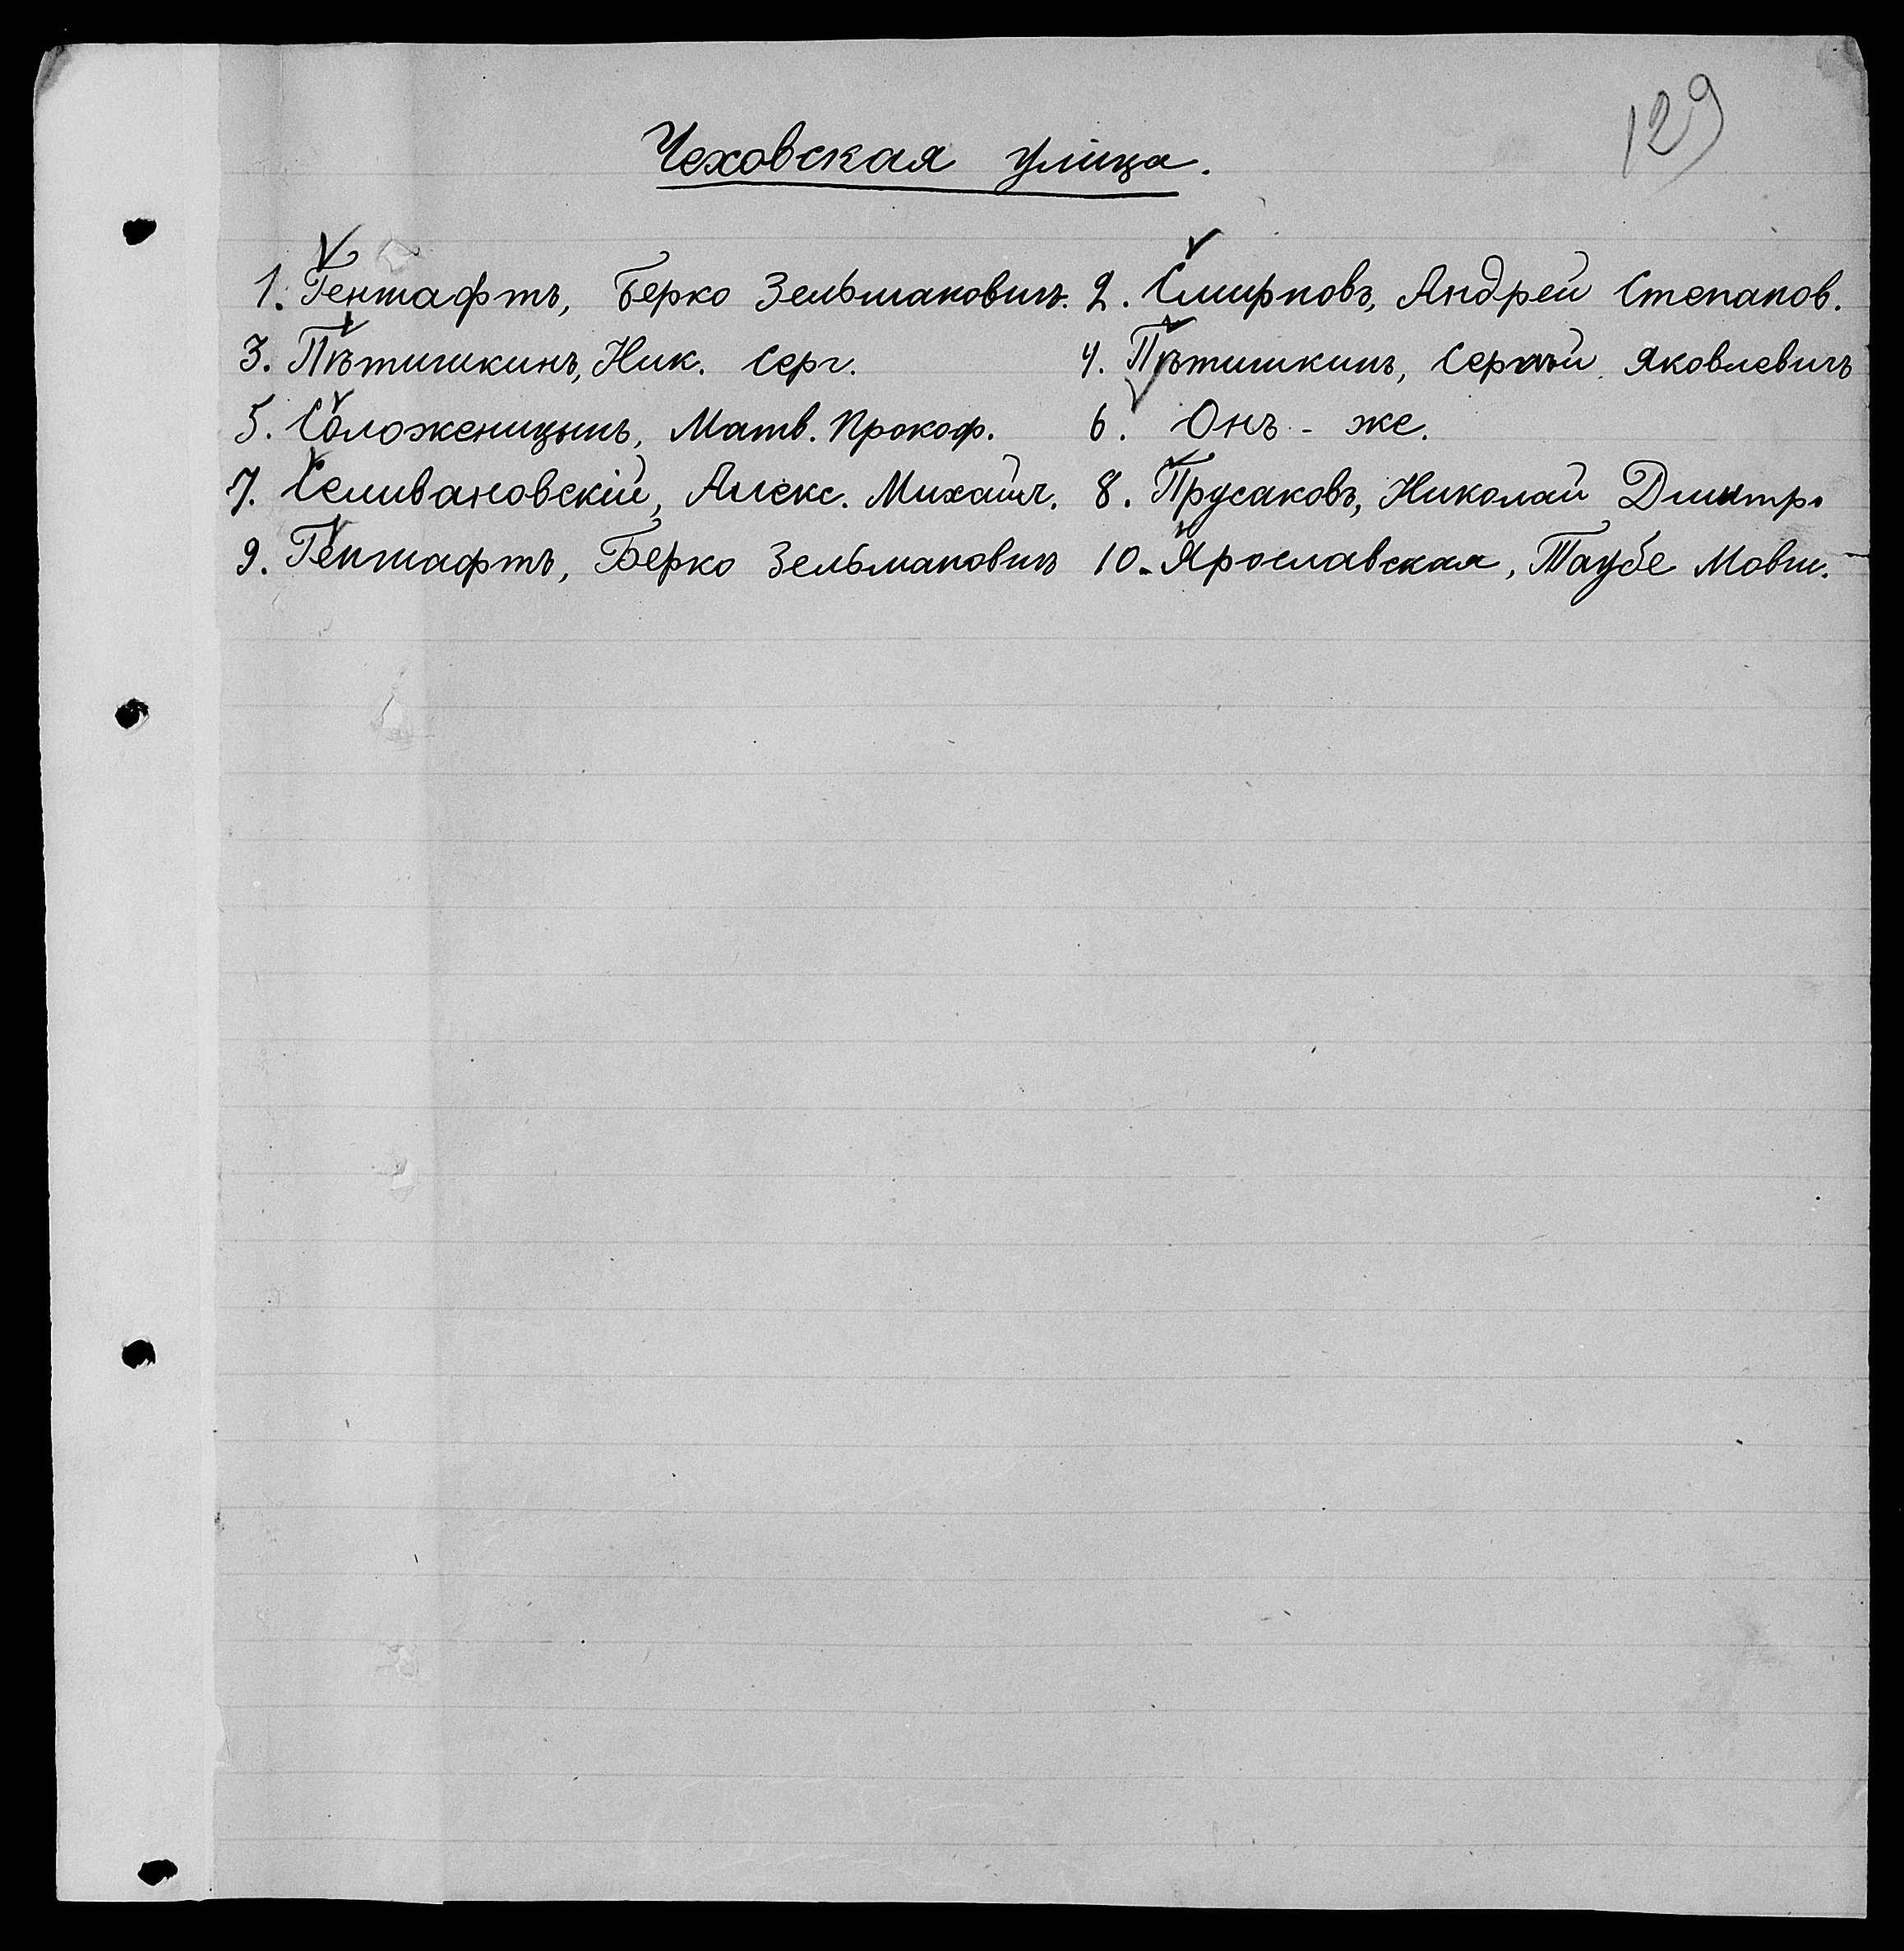 129
Чеховская улица.
1. Гентафтъ, Берко Зельмановичъ. 2. Смирновъ, Андрей Степанов.
3. Пѣтишкинъ, Ник. Серг. 4. Пѣтишкинъ, Сергѣй Яковлевичъ
5. Соложеницынъ, Матв. Прокоф. 6. Онъ - же.
7. Селивановскій, Алекс. Михайл. 8. Прусаковъ, Николай Дмитр.
9. Гентафтъ, Берко Зельмановичъ 10. Ярославская, Таубе Мовш.